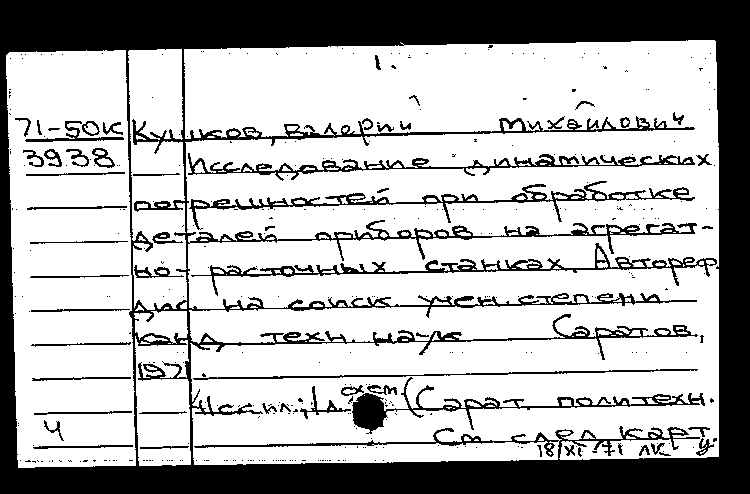 1.
71-50К Кушков, Валерий Михайлович
3938 Исследование динамических
погрешностей при обработке
деталей приборов на агрегат-
но-расточных станках. Автореф.
дис. на соиск. учен. степени
канд. техн. наук Саратов,
1971.
схем. (Сарат. политехн.
Ч См след карт
18/XI 71 ЛК